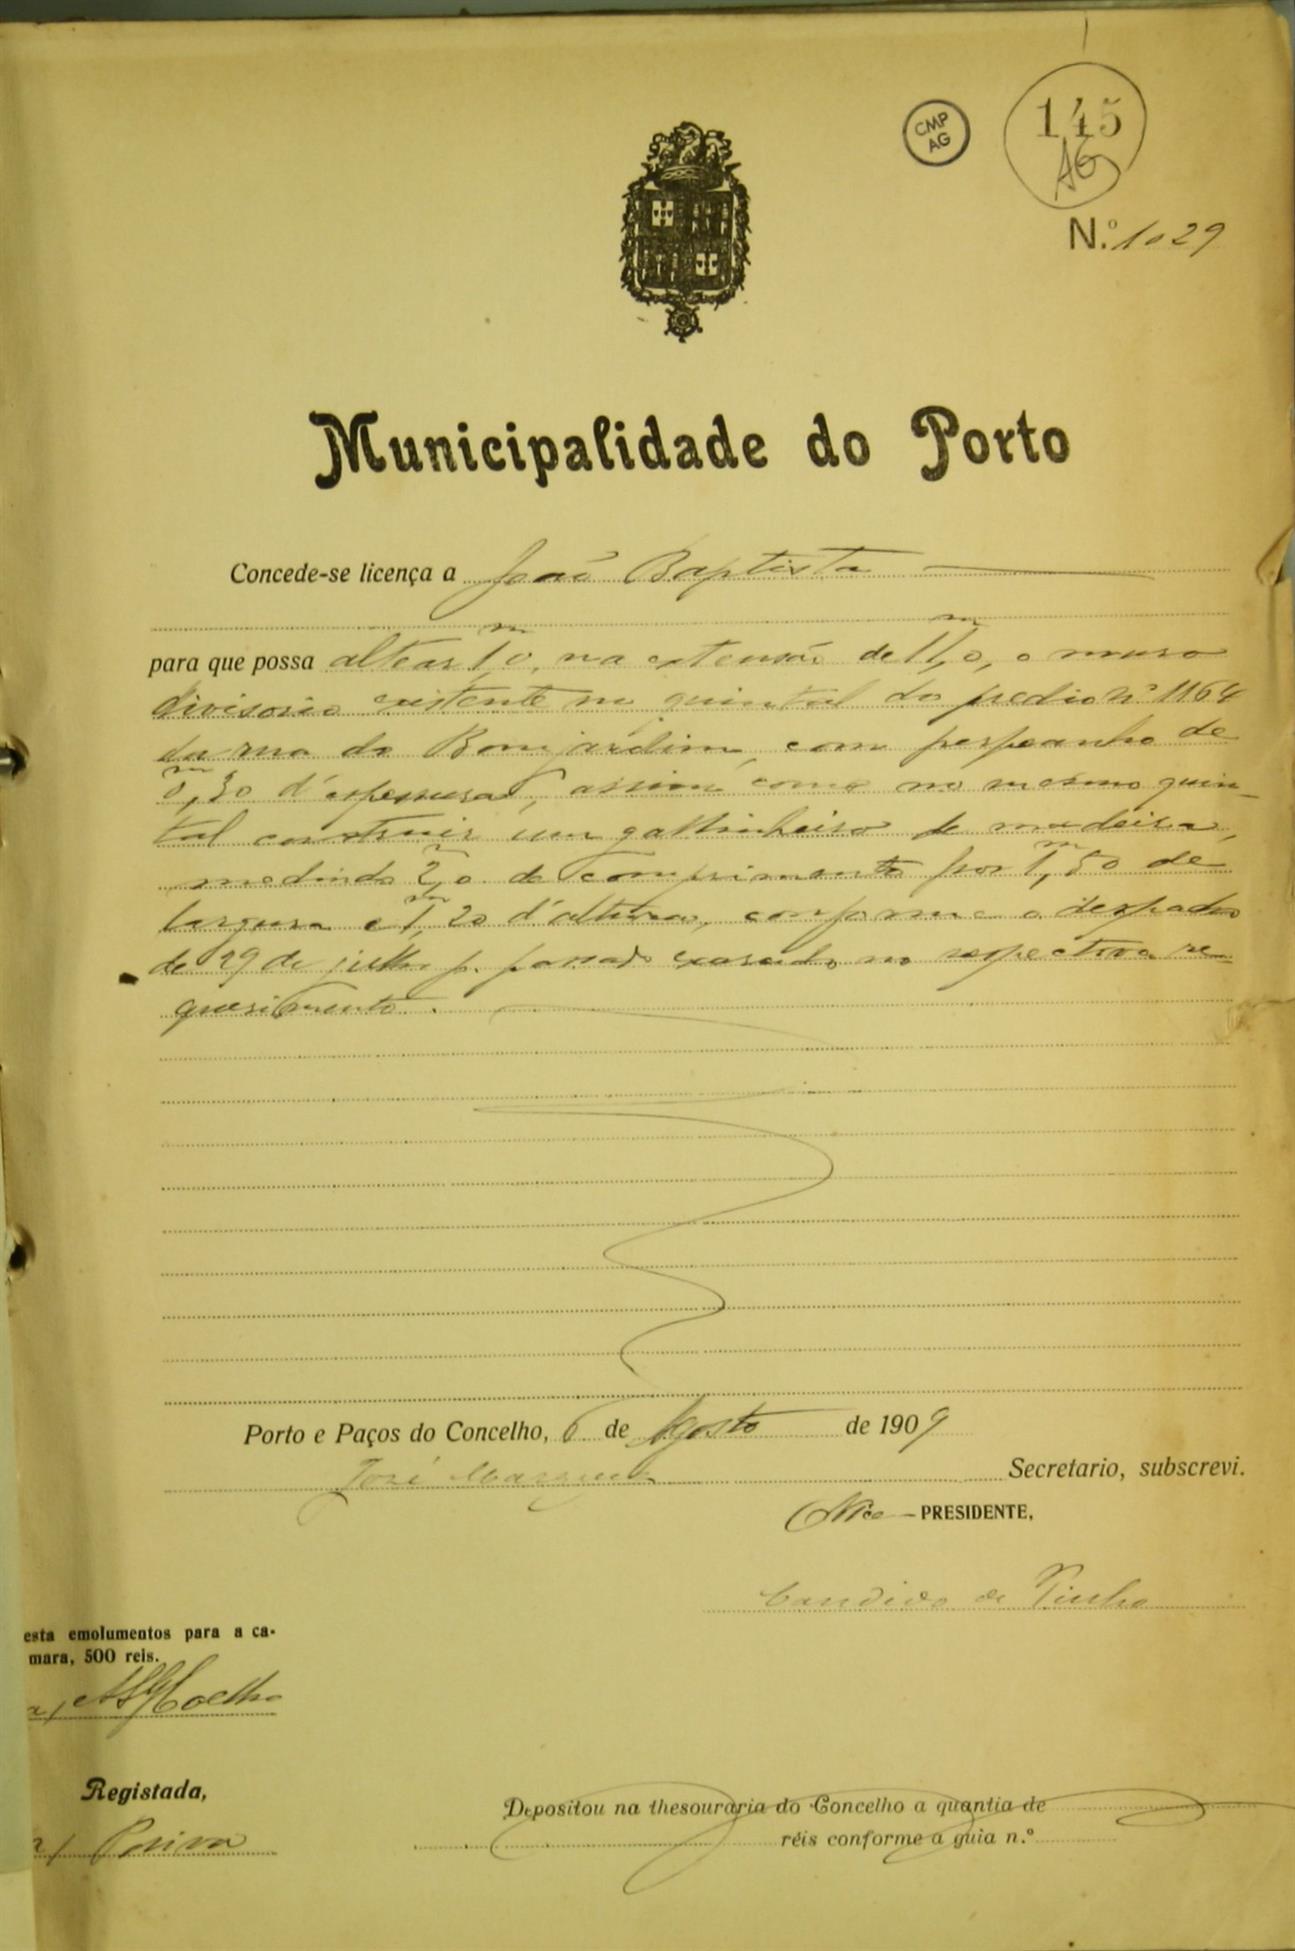 CMP
AG
145
AG
N.º 1029
Municipalidade do Porto
Concede-se licença a João Baptista
para que possa altear 1,0m, na extensão de 11,0m, o muro
divisorio existente no quintal do predio nº 1164
da rua do Bomjardim, com perpeanho de
0,30m d'espessura, assim como no mesmo quin-
tal construir um gallinheiro de madeira,
medindo 2,0m de comprimento por 1,50m de
largura e 1,20m d'altura, conforme o despacho
de 29 de julho p. passado exarado no respectivo re-
querimento.
Porto e Paços do Concelho, 6 de Agosto de 1909
José Marques Secretario, subscrevi.
O Vice-PRESIDENTE,
Candido de Pinho
esta emolumentos para a ca-
mara, 500 reis.
a) Coelho
Registada,
a)
Depositou na thesouraria do Concelho a quantia de
réis conforme a guia n.º